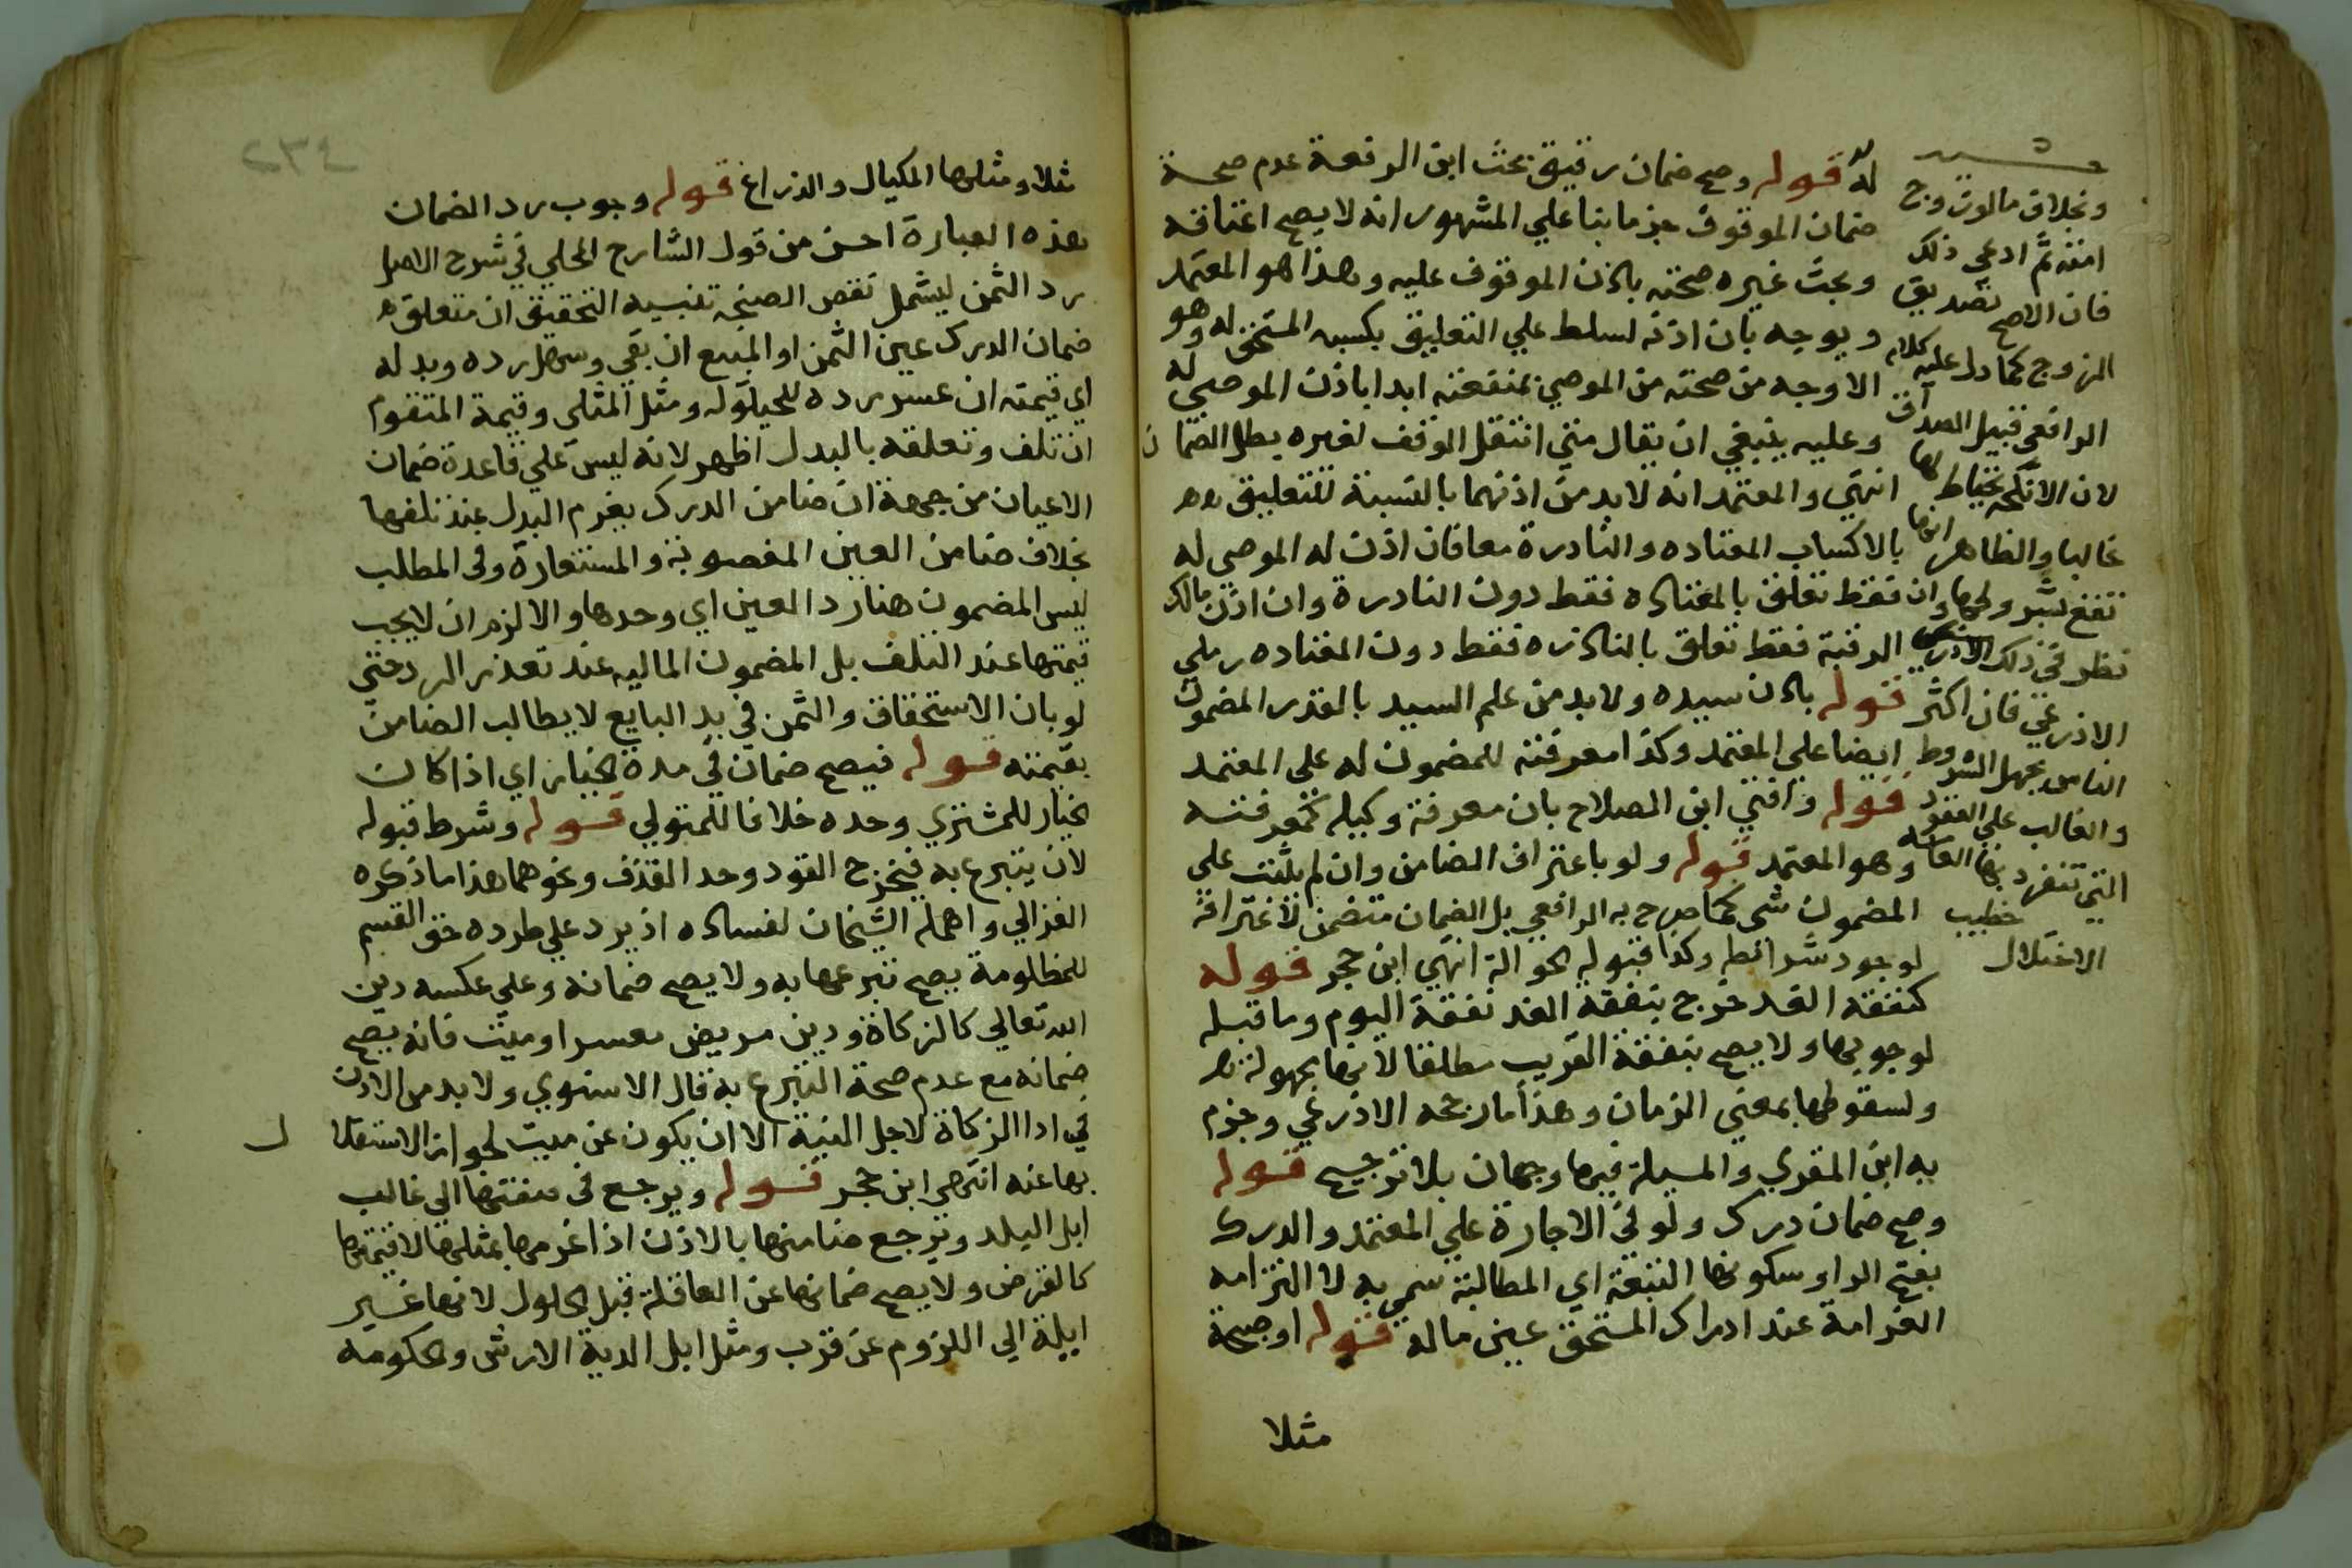 له قوله وصح ضمان رقيق بحث ابن الرفعة عدم صحة
ضمان الموقوف جزما بنا علي المشهور انه لا يصح اعتاقه
وبحث غيره صحته باذن الموقوف عليه وهذا هو المعتمد
ويوجه بان اذنه لسلط علي التعليق بكسبه المستحق له وهو
الاوجه من صحته من الموصي بمنفعته ابدا باذن الموصي له
وعليه ينبغي ان يقال متي انتقل الوقف لغيره بطل الضمان
انتهي والمعتمد انه لا بد من اذنهما بالنسبة للتعليق
بالاكساب المعتاده والنادرة معا فان اذن له الموصي له
فقط تعلق بالمعتاده فقط دون النادرة وان اذن مالك
الرقبة فقط تعلق بالنادره فقط دون المعتاده رملي
قوله باذن سيده ولا بد من علم السيد بالقدر المضمون
ايضا علي المعتمد وكذا معرفته للمضمون له علي المعتمد
قوله وافتي ابن الصلاح بان معرفة وكيله كمعرفته
وهو المعتمد قوله ولو باعتراف الضامن وان لم يثبت علي
المضمون شي كما صرح به الرافعي بل الضمان متضمن لاعترافه
لوجود شرائطه وكذا قبوله الحوالة انتهي ابن حجر قوله
كنفقة الغد خرج بنفقة الغد نفقة اليوم وما قبله
لوجوبها ولا يصح بنفقة القريب مطلقا لانها مجهولة
ولسقوطها بمضي الزمان وهذا ما رجحه الاذرعي وجزم
به ابن المقري والمسيلة فيها وجهان بلا ترجيح قوله
وصح ضمان درك ولو في الاجارة علي المعتمد والدرك
بفتح الرا وسكونها التبعة اي المطالبة سمي به لالتزامه
الغرامة عند ادراك المستحق عين ماله قوله او صنجة
مثلا
وبخلاف ما لو تزوج
امته ثم ادعي ذلك
فان الاصح تصديق
الزوج كما دل عليه كلام
الرافعي قبيل الصداق
لان الانكحة يحتاط لها
غالبا والظاهر انها
تقع بشروطها وان
نظر في ذلك
الاذرعي فان اكثر
الناس يجهل الشروط
والغالب علي العقود
التي تنفرد بها العامة
الاختلال خطيب
مثلا ومثلها المكيال والذراع قوله وجوب رد الضمان
هذه العبارة احسن من قول الشارح المحلي في شرح الاصل
رد الثمن ليشمل نقص الصنجه تنبيه التحقيق ان متعلق
ضمان الدرك عين الثمن او المبيع ان بقي وسهل رده وبدله
اي قيمته ان عسر رده للحيلولة ومثل المثلي وقيمة المتقوم
ان تلف وتعلقه بالبدل اظهر لانه ليس علي قاعدة ضمان
الاعيان من جهة ان ضامن الدرك يغرم البدل عند تلفها
بخلاف ضامن العين المغصوبة والمستعارة وفي المطلب
ليس المضمون هنا رد العين اي وحدها والا لزم ان لا يجب
قيمتها عند التلف بل المضمون الماليه عند تعذر الرد حتي
لو بان الاستحقاق والثمن في يد البايع لا يطالب الضامن
بقيمته قوله فيصح ضمان في مدة الخيار اي اذا كان
الخيار للمشتري وحده خلافا للمتولي قوله وشرط قبوله
لان يتبرع به فيخرج القود وحد القذف ونحوهما هذا ما ذكره
الغزالي واهمله الشيخان لفساده اذ يرد علي طرده حق القسم
للمظلومة يصح تبرعها به ولا يصح ضمانه وعلي عكسه دين
الله تعالي كالزكاة ودين مريض معسر او ميت فانه يصح
ضمانه مع عدم صحة التبرع به قال الاسنوي ولا بد من الاذن
في ادا الزكاة لاجل النية الا ان يكون عن ميت لجواز الاستقلال
بها عنه انتهي ابن حجر قوله ويرجع في صفتها الي غالب
ابل البلد ويرجع ضامنها بالاذن اذا غرمها بمثلها لا قيمتها
كالقرض ولا يصح ضمانها عن العاقلة قبل الحلول لانها غير
ايلة الي اللزوم عن قرب ومثل ابل الدية الارش والحكومة